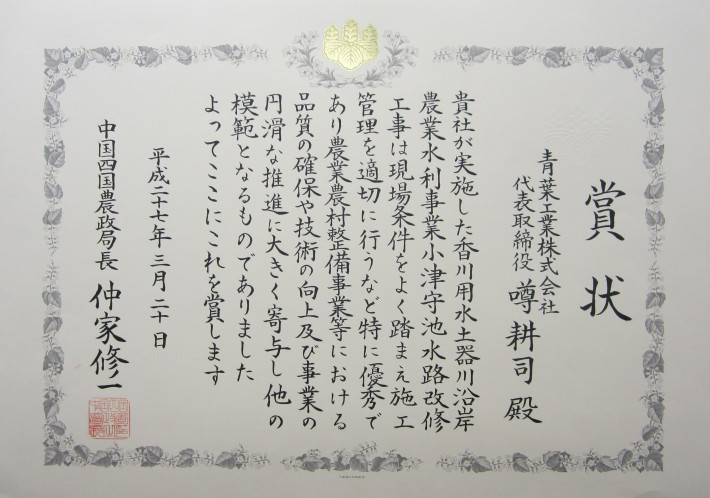 賞状
青葉工業株式会社
代表取締役 噂耕司殿
貴社が実施した香川用水土器川沿岸
農業水利事業小津守池水路改修
工事は現場条件をよく踏まえ施工
管理を適切に行うなど特に優秀で
あり農業農村整備事業等における
品質の確保や技術の向上及び事業の
円滑な推進に大きく寄与し他の
模範となるものでありました
よってここにこれを賞します
平成二十七年三月二十日
中国四国農政局長 仲家修一